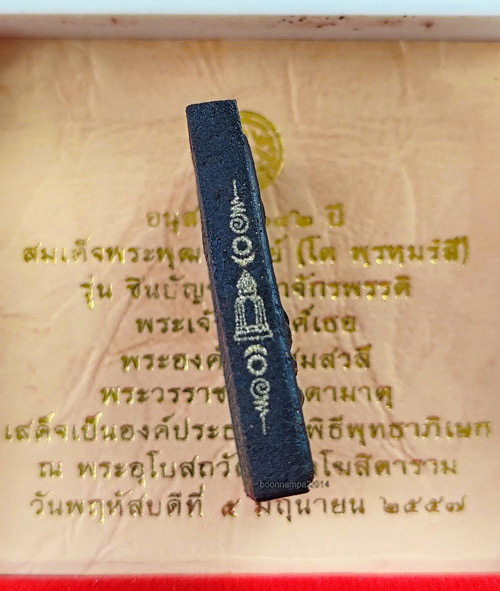 อนุส ๑๔๒ ปี
สมเด็จพระพุฒ ย์ (โต พฺรหฺมรํสี)
รุ่น ชินบัญ จักรพรรดิ
พระเจ้ ค์เธอ
พระองค์ โสมสวลี
พระวรราช ดามาตุ
เสด็จเป็นองค์ประธ พิธีพุทธาภิเษก
ณ พระอุโบสถวั งโฆสิตาราม
วันพฤหัสบดีที่ ๕ มิถุนายน ๒๕๕๗